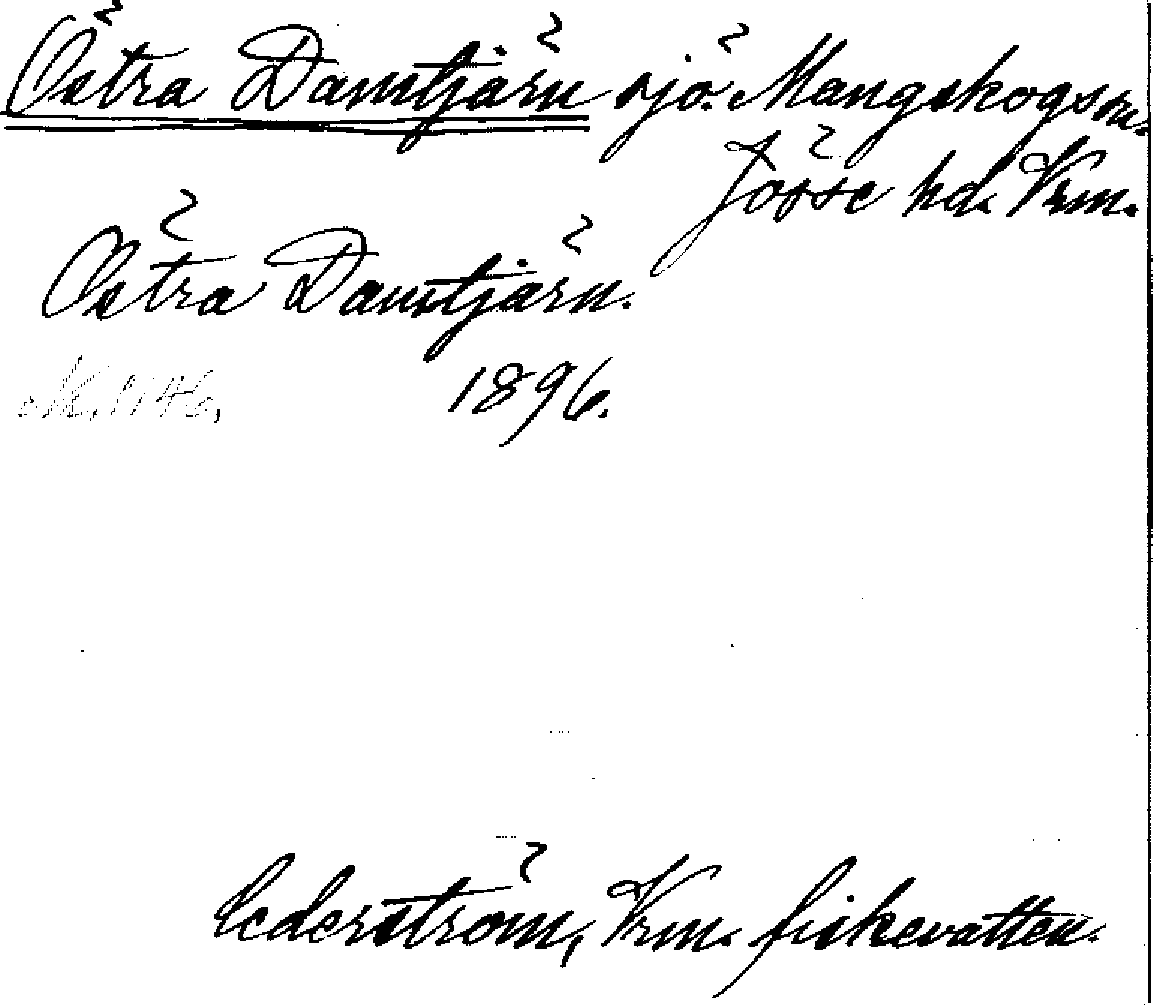 Östra Damtjärn sjö. Mangskogs sn.
Jösse hd. Vrm.
Östra Damtjärn.
1896.
Cederström, Vrm. fiskevatten.